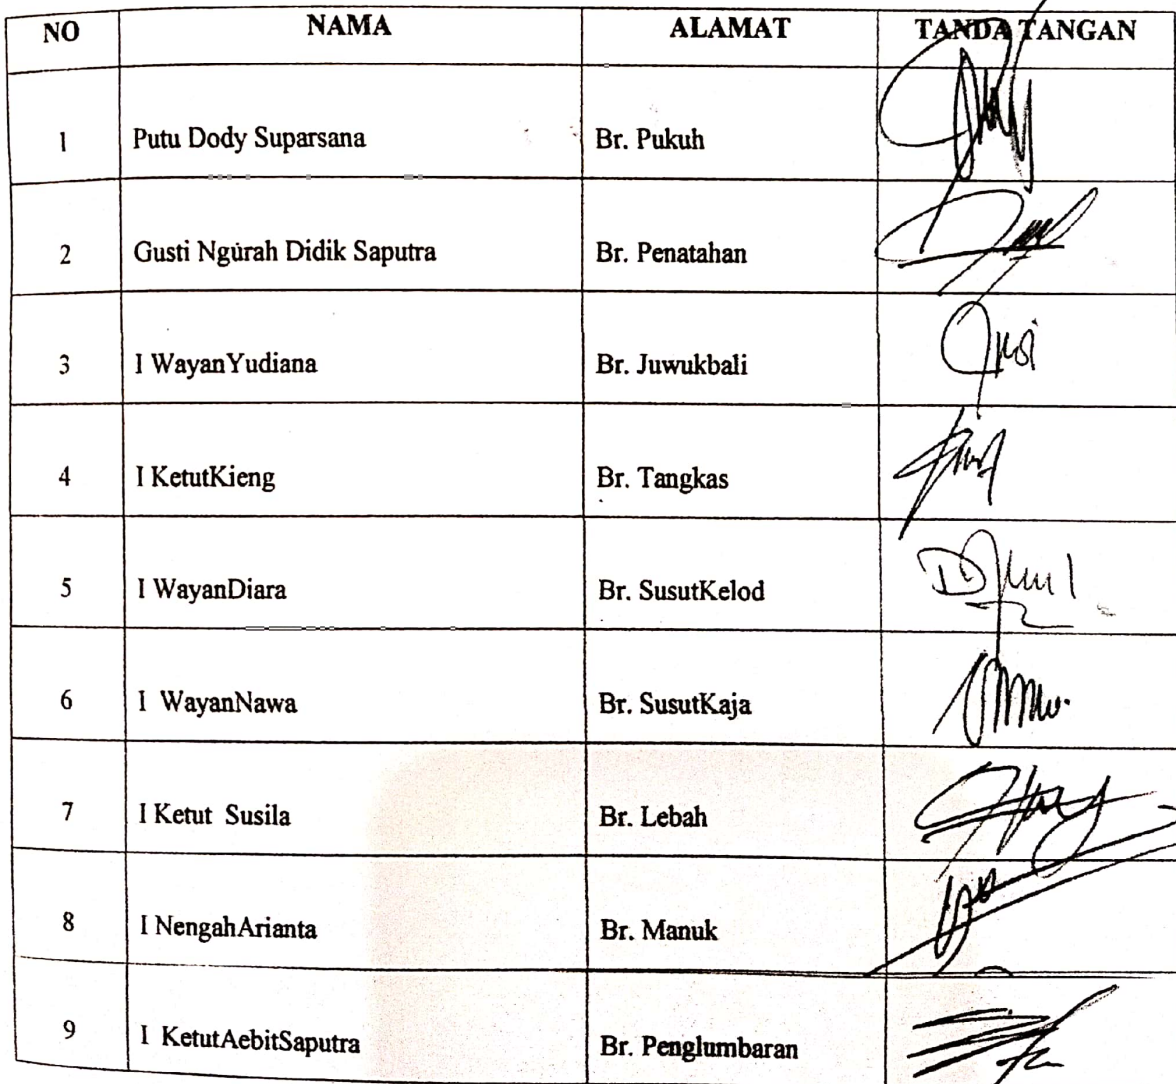 NO NAMA ALAMAT TANDA TANGAN
1 Putu Dody Suparsana Br. Pukuh
2 Gusti Ngurah Didik Saputra Br. Penatahan
3 I WayanYudiana Br. Juwukbali
4 I KetutKieng Br. Tangkas
5 I WayanDiara Br. SusutKelod
6 I WayanNawa Br. SusutKaja
7 I Ketut Susila Br. Lebah
8 I NengahArianta Br. Manuk
9 I KetutAebitSaputra Br. Penglumbaran